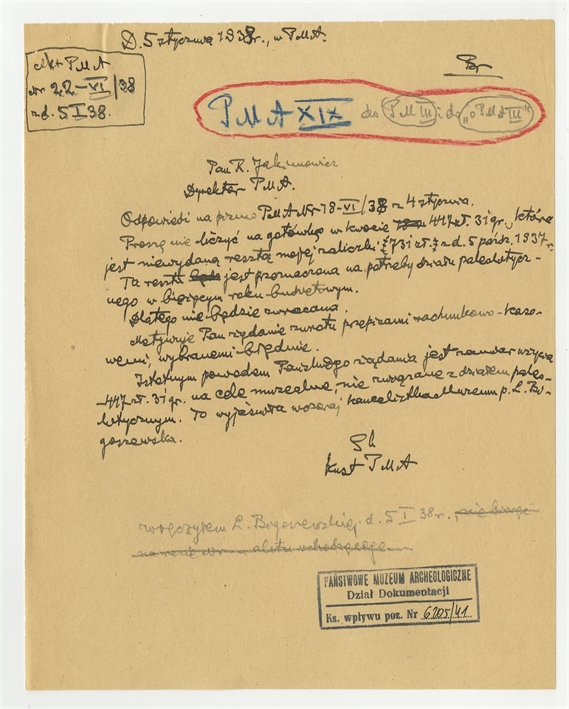 D. 5 stycznia 1938 r., w P.M.A.
Br
Akt PMA
nr 22-VI/38
z d. 5 I 38.
PMA XIX do PM III i do „o PMA III"
Pan R. Jakimowicz
Dyrektor P.M.A.
Odpowiedź na pismo PMA Nr 18-VI/38 z 4 stycznia.
Proszę nie liczyć na gotówkę w kwocie 447 zł. 31 gr., która
jest niewydaną resztą mojej zaliczki 731 zł. z d. 5 paźdz. 1937 r.
Ta reszta jest przeznaczona na potrzeby działu paleolitycz-
nego w bieżącym roku budżetowym.
Dlatego nie będzie zwracana.
Motywuje Pan żądanie zwrotu przepisami rachunkowo-kaso-
wemi, wybranemi błędnie.
Istotnym powodem Pańskiego żądania jest zamiar użycia
447 zł. 31 gr. na cele muzealne, nie związane z działem paleo-
litycznym. To wyjaśniła wczoraj kancelistka Muzeum p. Ł. Bo-
goszewska.
Kust PMA
wręczyłem Ł. Bogoszewskiej d. 5 I 38 r.,
PAŃSTWOWE MUZEUM ARCHEOLOGICZNE
Dział Dokumentacji
Ks. wpływu poz. Nr 6205/41